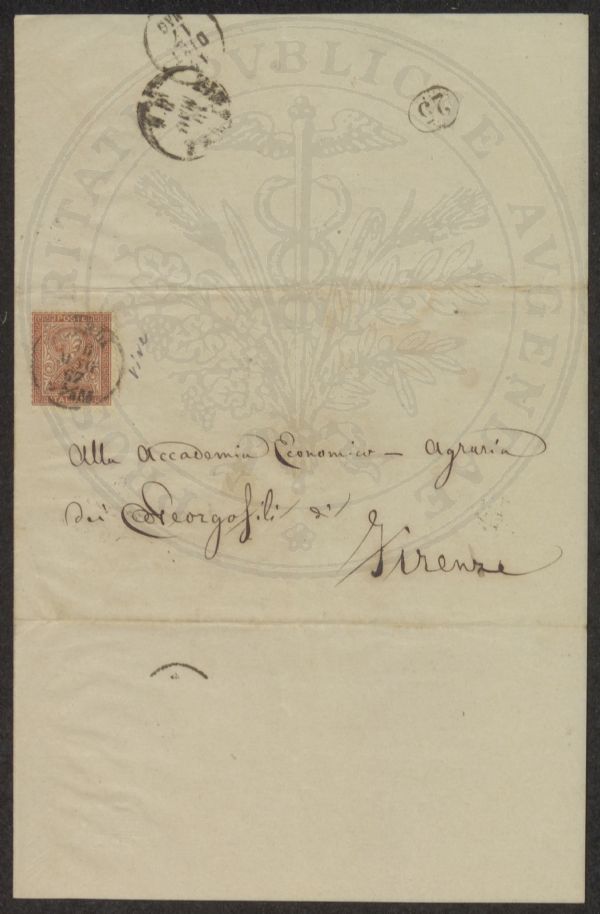 PROSPERITATI PVBLICAE AVGENDAE
22
POSTE
Alla Accademia Economico – Agraria
dei Georgofili di
Firenze